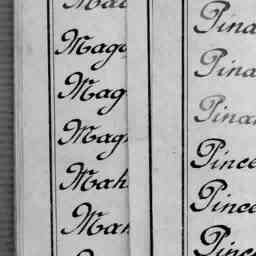 Mad
Magg
Mag
Mag
Mah
Man
Pina
Pina
Pina
Pince
Pince
Pince